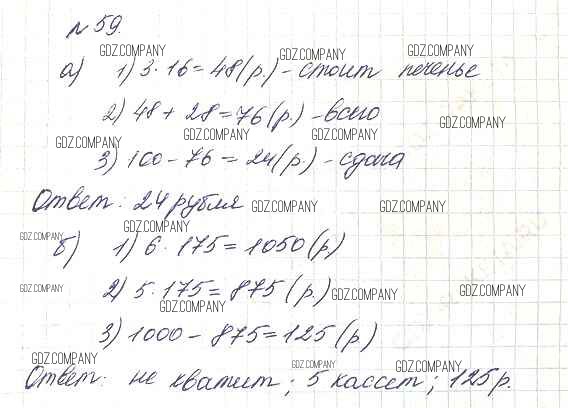 № 59.
GDZ.COMPANY GDZ.COMPANY GDZ.COMPANY
а) 1) 3 · 16 = 48 (р.) - стоит печенье
2) 48 + 28 = 76 (р.) - всего
GDZ.COMPANY
GDZ.COMPANY GDZ.COMPANY GDZ.COMPANY
3) 100 - 76 = 24 (р.) - сдача
Ответ: 24 рубля GDZ.COMPANY GDZ.COMPANY
GDZ.COMPANY GDZ.COMPANY
б) 1) 6 · 175 = 1050 (р)
GDZ.COMPANY 2) 5 · 175 = 875 (р.) GDZ.COMPANY GDZ.COMPANY
GDZ.COMPANY
3) 1000 - 875 = 125 (р)
GDZ.COMPANY GDZ.COMPANY GDZ.COMPANY
Ответ: не хватит; 5 кассет; 125 р.